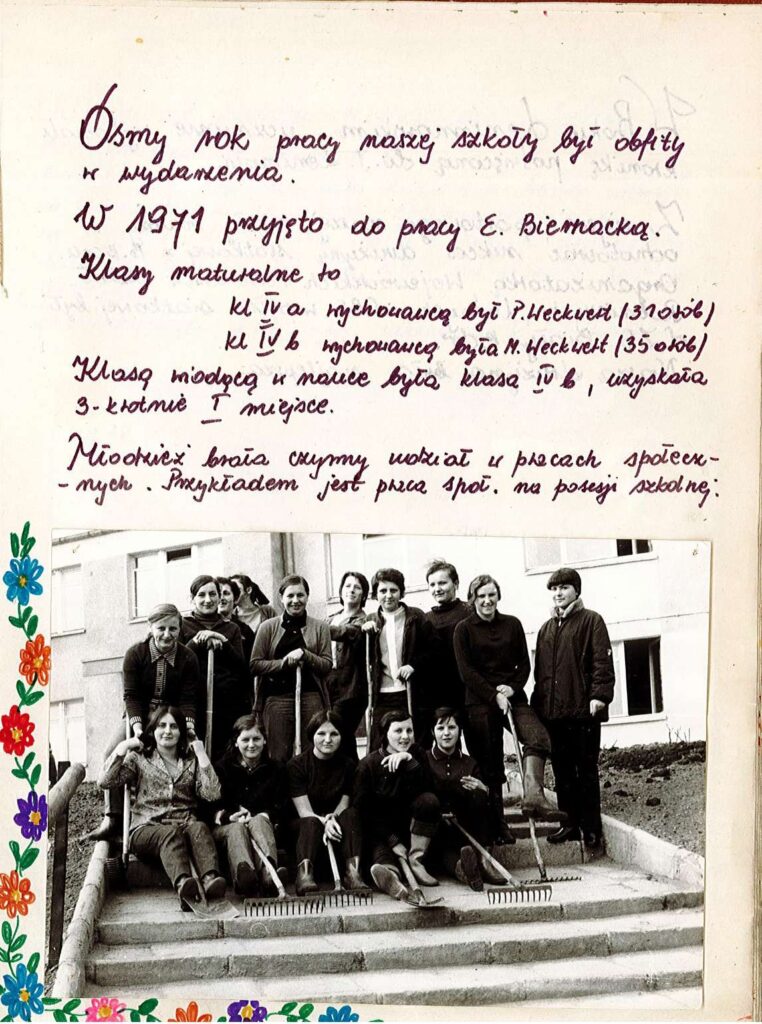 Ósmy rok pracy naszej szkoły był obfity
w wydarzenia.
W 1971 przyjęto do pracy E. Biernacką.
Klasy maturalne to
kl IV a wychowawcą był P. Weckwert (31 osób)
kl IV b wychowawcą była M. Weckwert (35 osób)
Klasą wiodącą w nauce była klasa IV b, uzyskała
3-krotnie I miejsce.
Młodzież brała czynny udział w pracach społecz-
-nych. Przykładem jest praca społ. na posesji szkolnej.